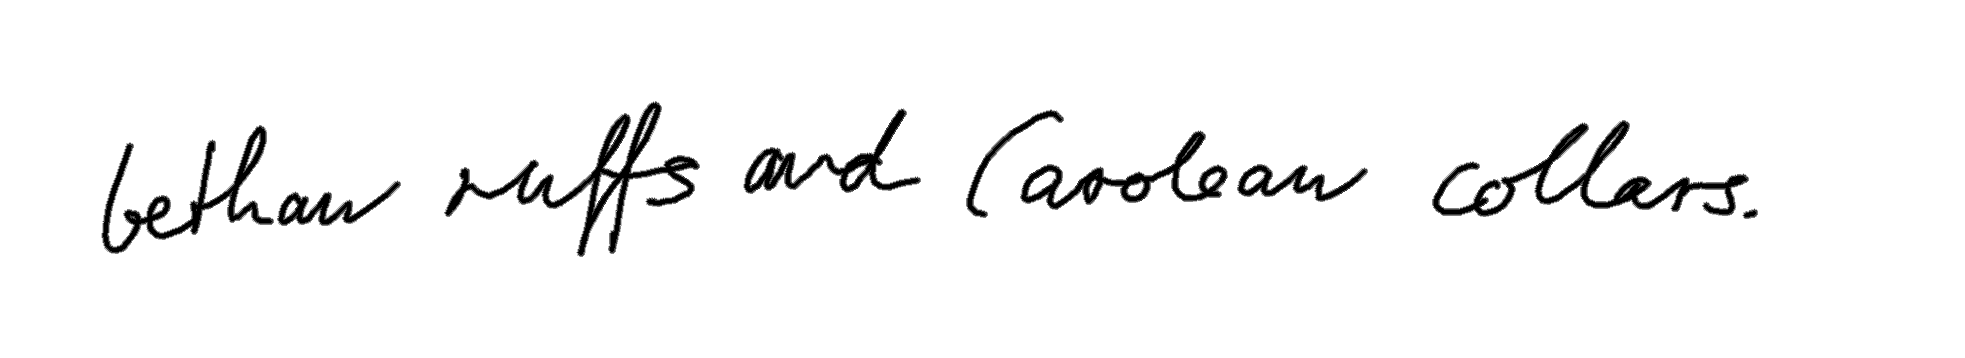 bethan ruffs and Carolean collars.